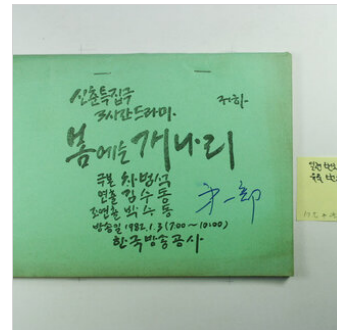 신춘특집극
3시간드라마.
봄에는 개나리
극본 차범석
연출 김수동
조연출 박수동
방송일 1982.1.3 (7:00~10:00)
한국방송공사
第一部